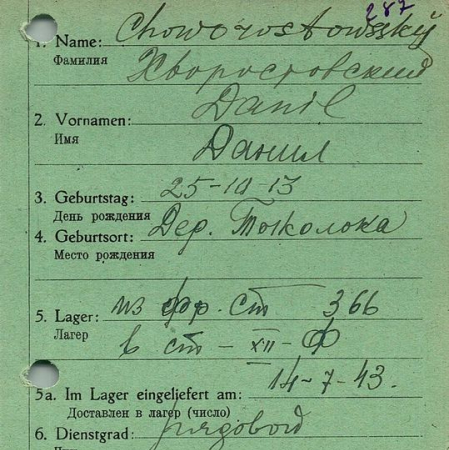 287
1. Name: Choworostowsskÿ
Фамилия Хворостовский
2. Vornamen: Daniel
Имя Данил
3. Geburtstag: 25-10-13
День рождения
4. Geburtsort: Дер.
Место рождения
5. Lager: из фр. ст 366
Лагер в ст - XII - Ф
5a. Im Lager eingeliefert am: 14-7-43.
Доставлен в лагер (число)
6. Dienstgrad: